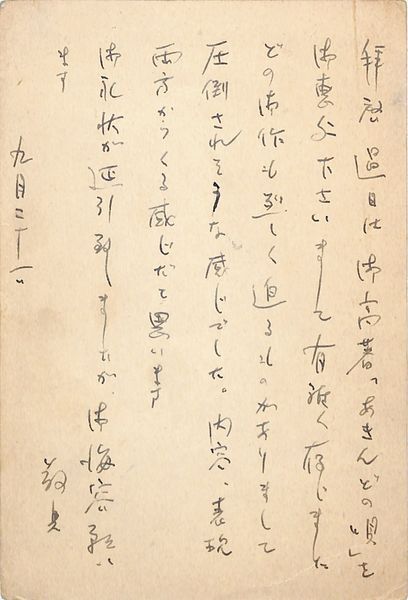 拝啓 過日は御高著「あきんどの唄」を
御恵与下さいまして有難く存じました
どの御作も烈しく迫るものがありまして
圧倒されそうな感じでした。内容、表現
両方からくる感じだと思います
御礼状が延引致しましたが、御海容願い
ます
九月二十一日
敬具